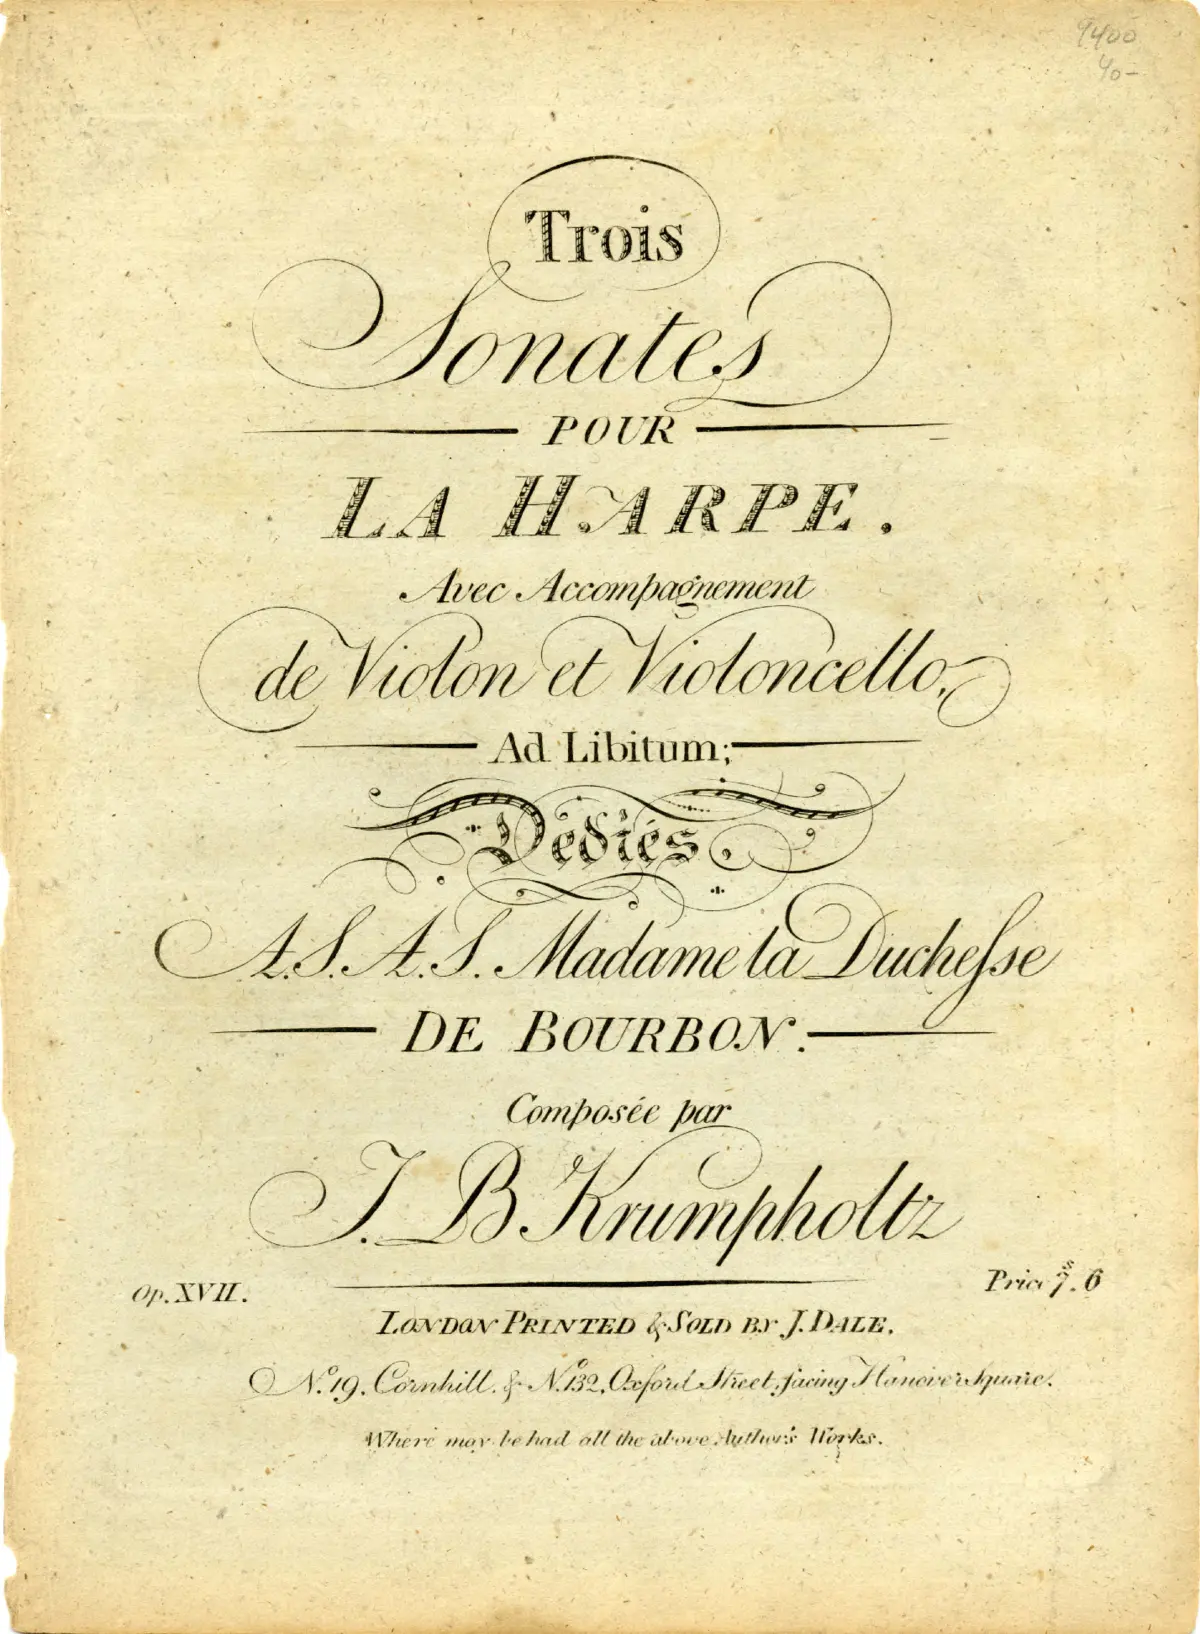 9400
40-
Trois
Sonates
POUR
LA HARPE.
Avec Accompagnement
de Violon et Violoncello,
Ad Libitum;
Dédiés,
A.S.A.S. Madame la Duchesse
DE BOURBON.
Composée par
J. B Krumpholtz
Op. XVII.
Price 7.s 6
LONDON PRINTED & SOLD BY J. DALE.
No. 19, Cornhill. & No. 132, Oxford Street, facing Hanover Square.
Where may be had all the above Author's Works.